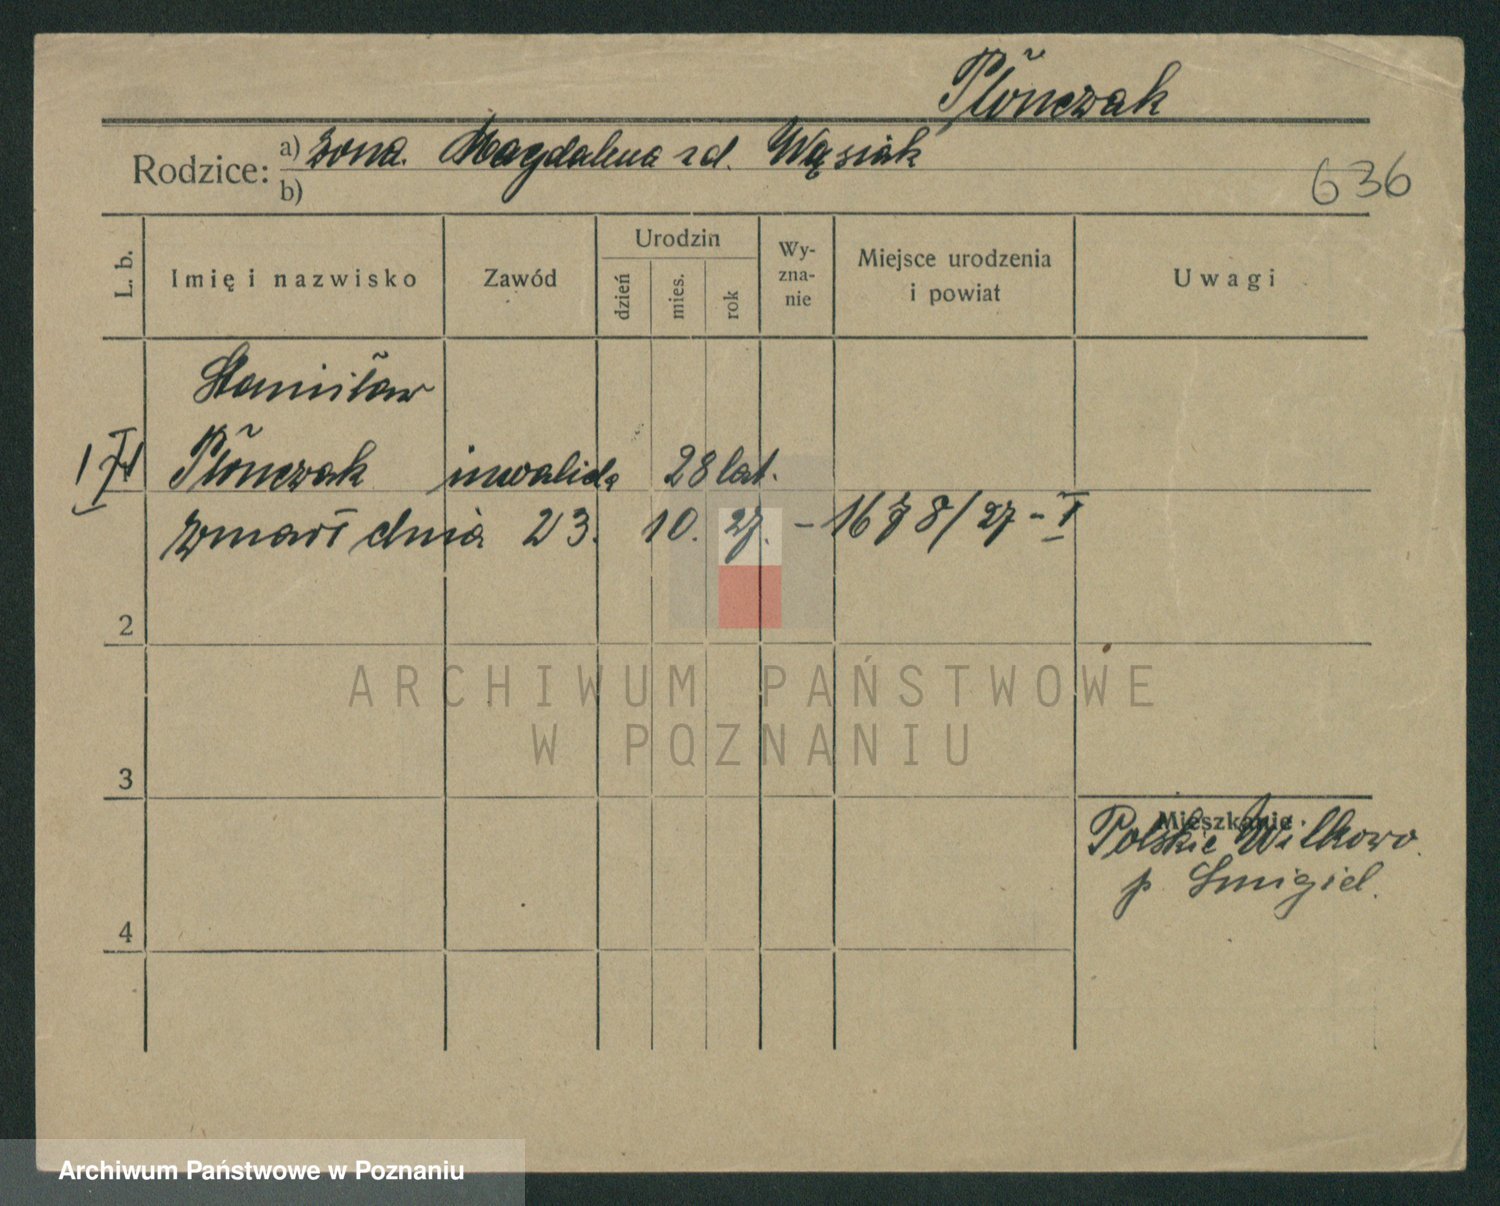 Płończak
Rodzice: a) żona. Magdalena zd. Wąsiak
b)
636
L. b.
Imię i nazwisko
Zawód
Urodzin
dzień
mies.
rok
Wy-
zna-
nie
Miejsce urodzenia
i powiat
Uwagi
Stanisław
Płończak inwalidą 28 lat.
zmarł dnia 23. 10. 27. – 1678/27 – I
2
3
4
Mieszkanie
Polskie Wilkowo.
p. Śmigiel.
ARCHIWUM PAŃSTWOWE
W POZNANIU
Archiwum Państwowe w Poznaniu